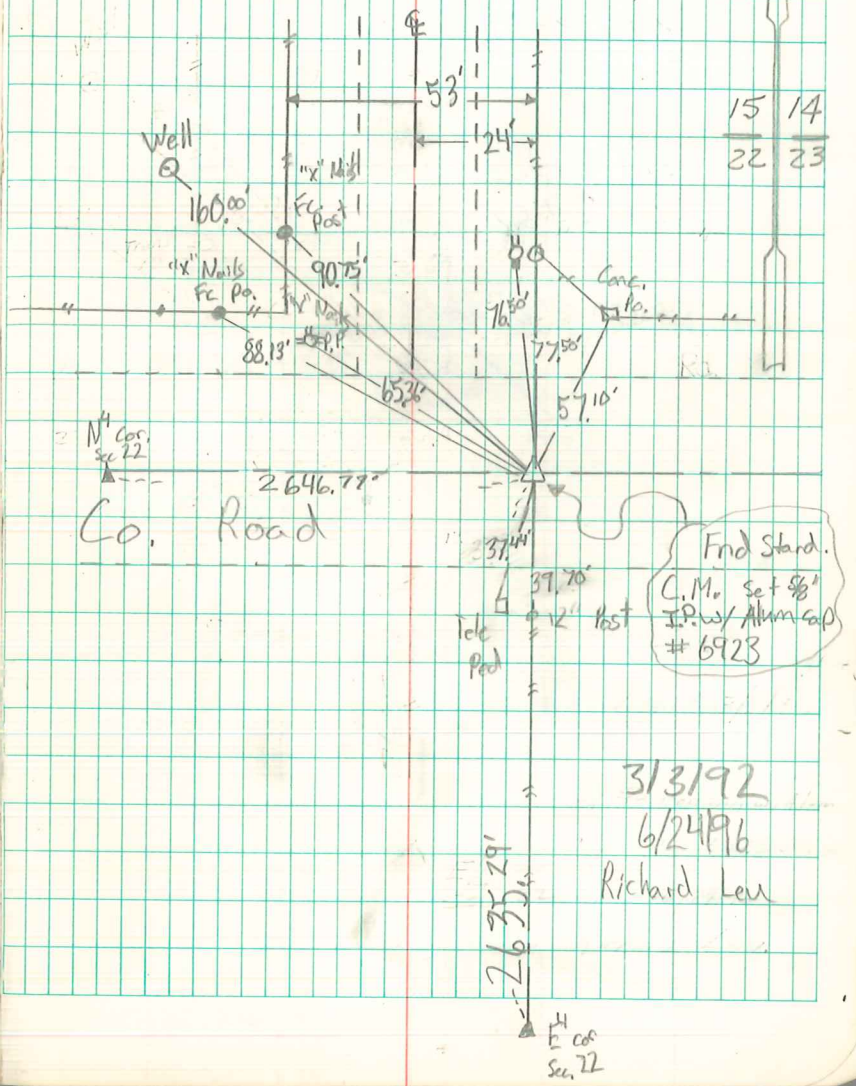 ℄
53'
24'
15 | 14
22 | 23
Well
160.00'
"X" Nails
Fc. Post
90.75'
"X" Nails
Fc. Po.
88.13'
P.P.
65.36'
76.50'
77.50'
Conc.
Po.
57.10'
N 4 Cor.
Sec 22
2646.77'
Co. Road
37.44'
39.70'
12" Post
Tele
Ped
Fnd Stand.
C.M. Set 5/8"
I.P. w/ Alum cap
# 6923
3/3/92
6/24/96
Richard Leu
2635.29'
E 4 cor
Sec. 22